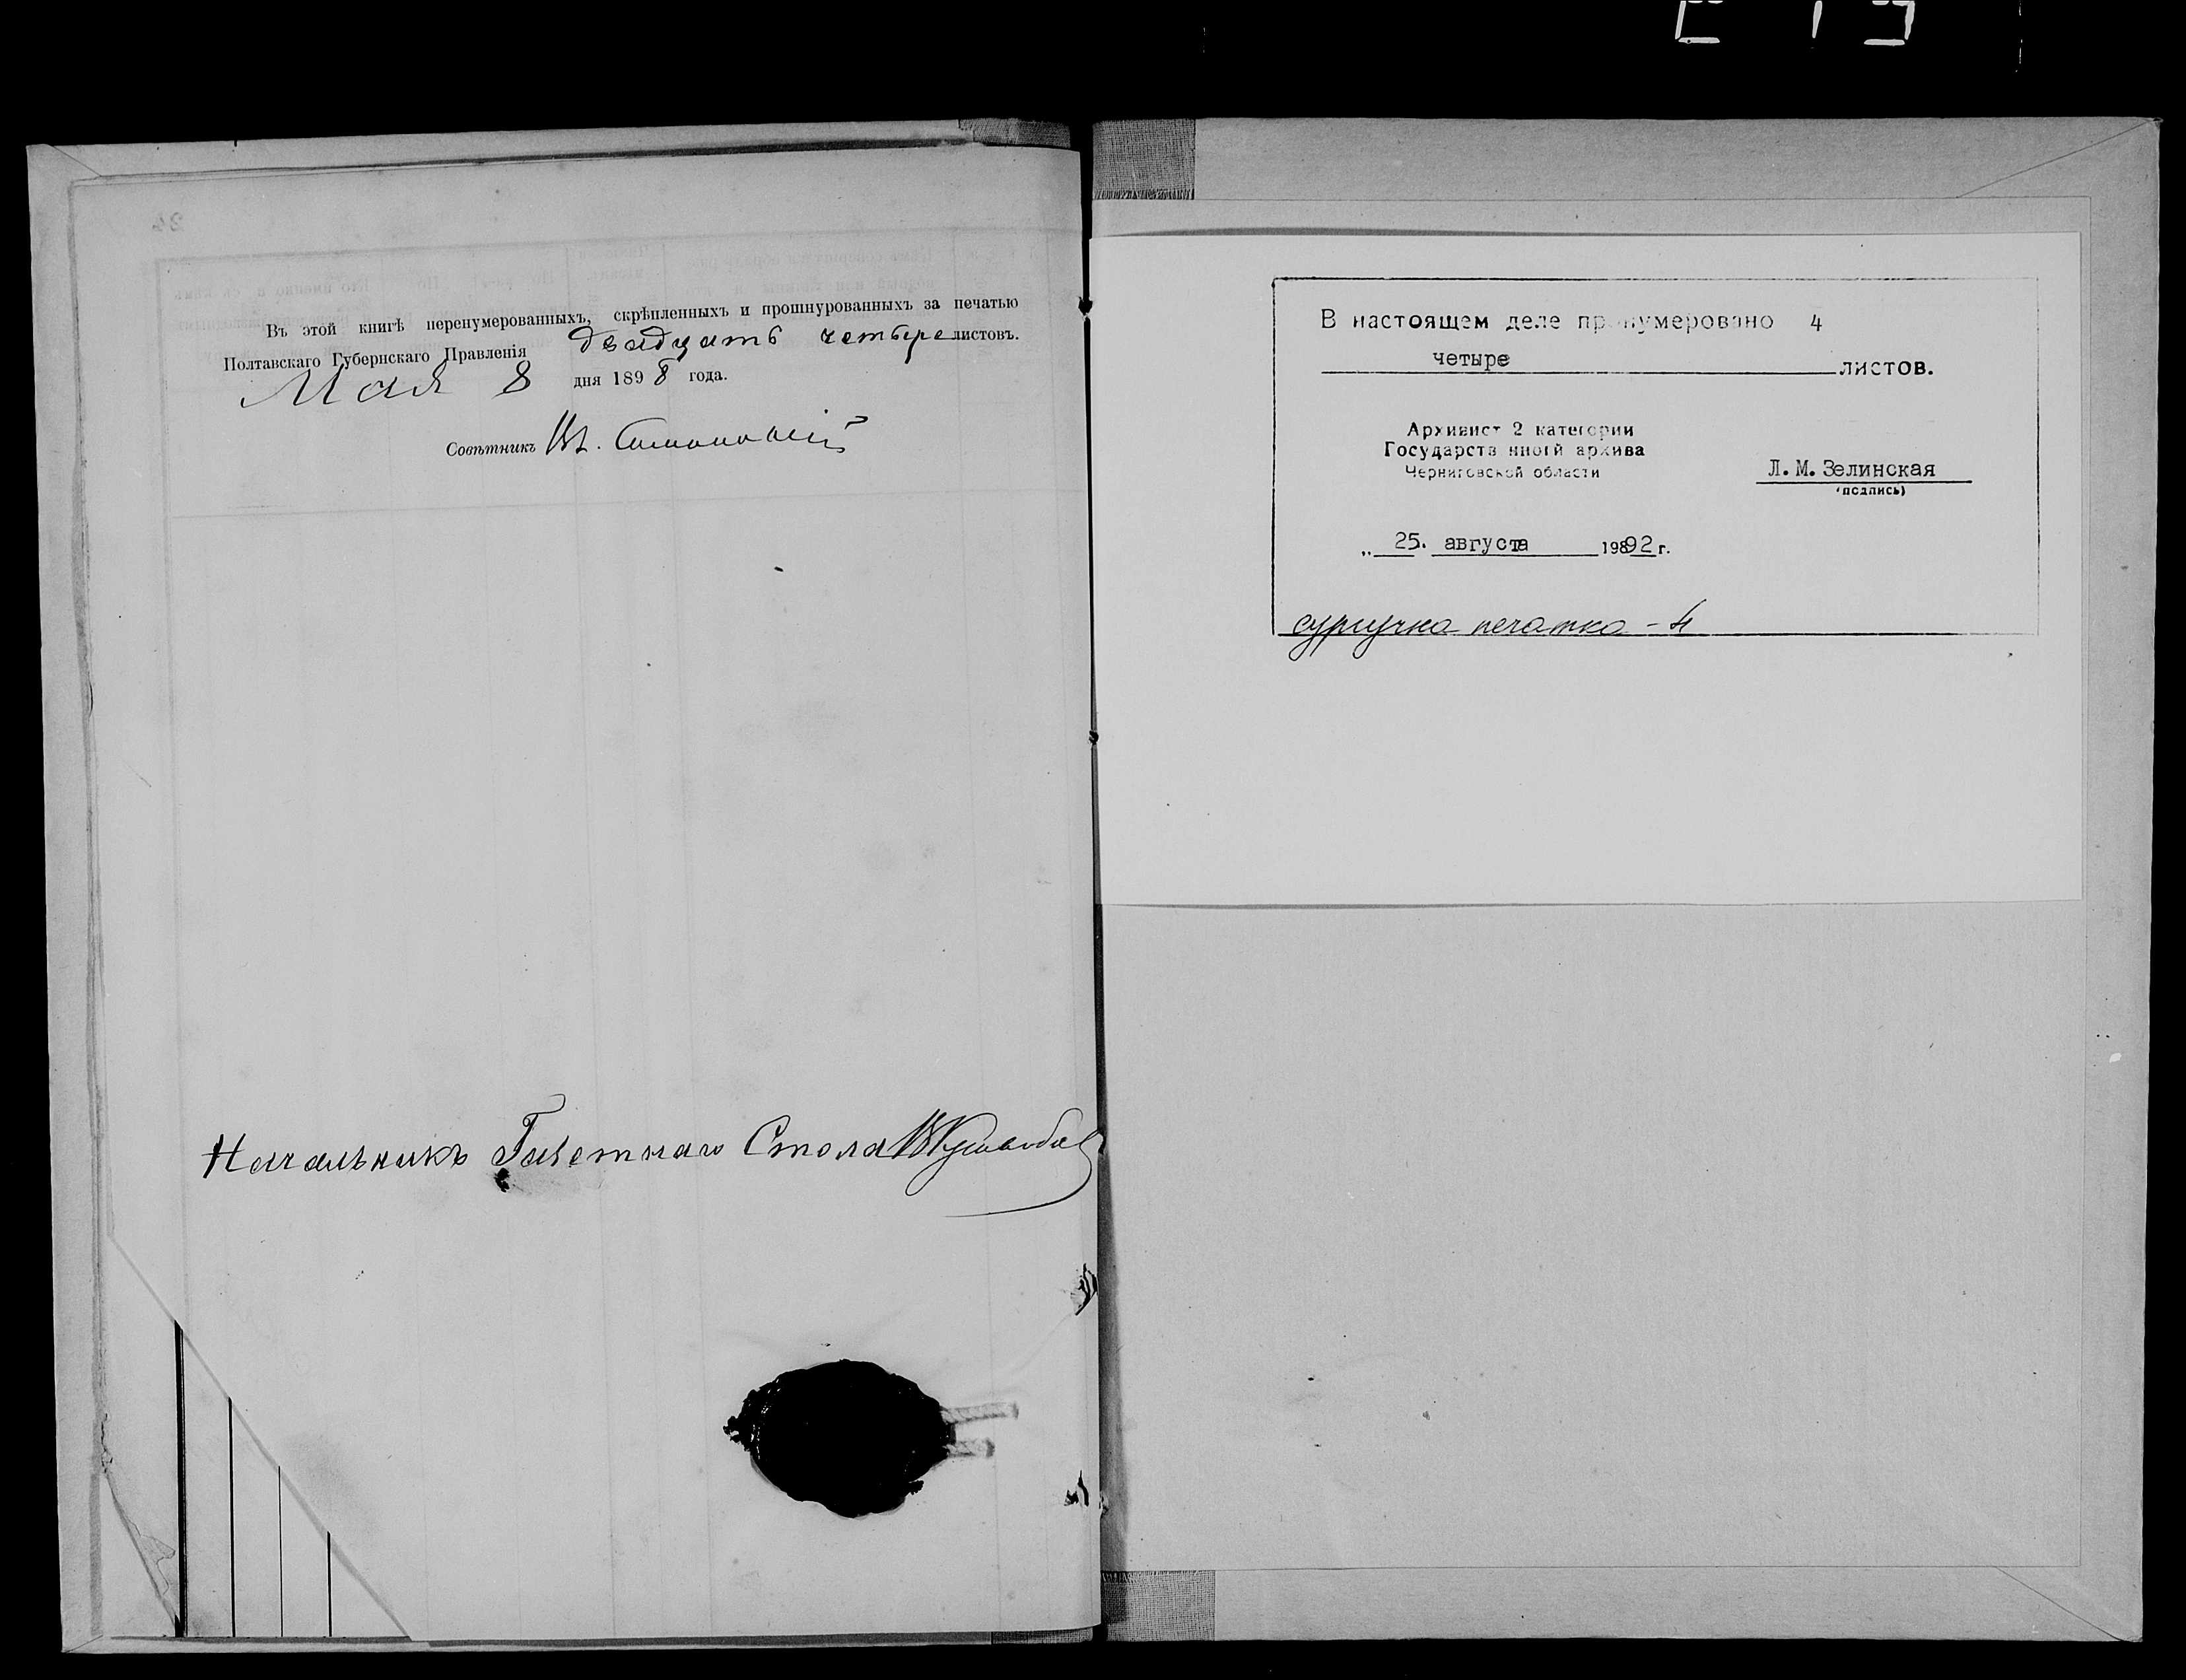 Въ этой книгѣ перенумерованныхъ, скрѣпленныхъ и прошнурованныхъ за печатью
Полтавскаго Губернскаго Правленія двадцать четыре листовъ.
Мая 8 дня 1898 года.
Совѣтникъ
Начальникъ Газетнаго Стола
В настоящем деле пронумеровано 4
четыре листов.
Архивист 2 категории
Государственного архива
Черниговской области
Л.М.Зелинская
(подпись)
„ 25. августа 19892 г.
сургучна печатка - 4